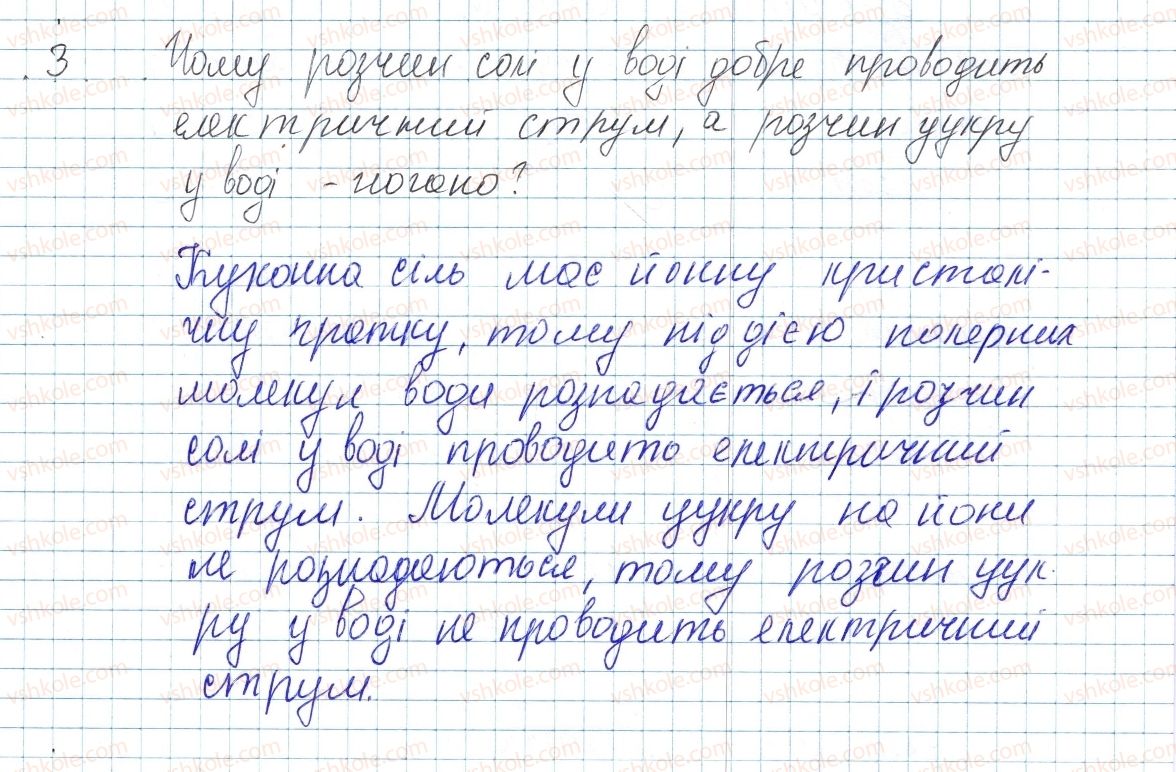 3. Чому розчин солі у воді добре проводить
електричний струм, а розчин цукру
у воді - погано?
Кухонна сіль має йонну кристалі-
чну гратку, тому під дією полярних
молекул води розпадається, і розчин
солі у воді проводить електричний
струм. Молекули цукру на йони
не розпадаються, тому розчин цук-
ру у воді не проводить електричний
струм.